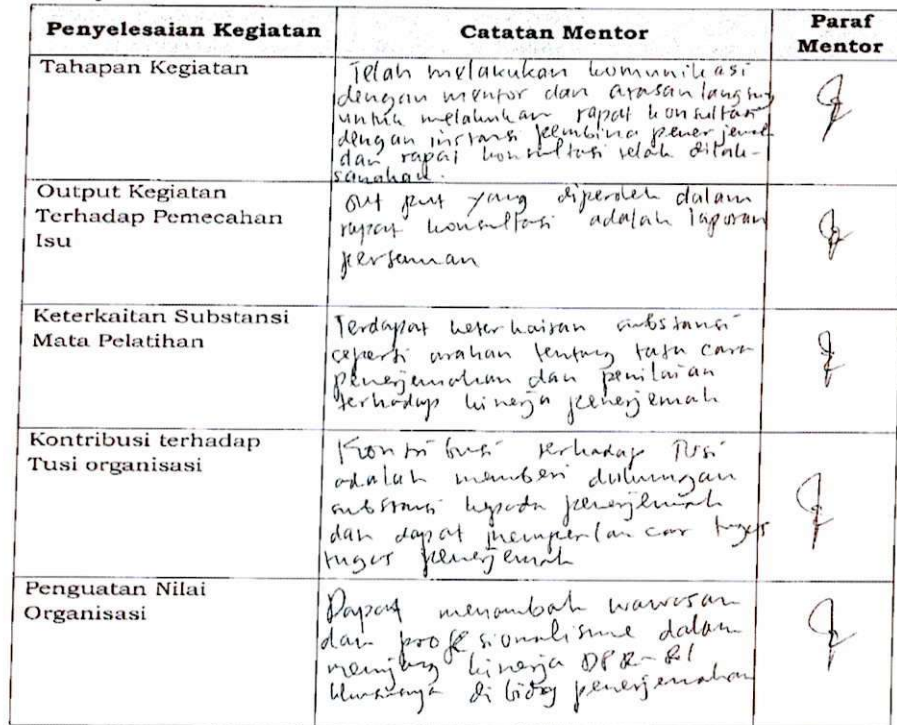 Penyelesaian Kegiatan
Catatan Mentor
Paraf
Mentor
Tahapan Kegiatan
Telah melakukan komunikasi
dengan mentor dan atasan langsung
untuk melakukan rapat konsultasi
dengan instansi pembina penerjemah
dan rapat konsultasi telah dilak-
sanakan.
Output Kegiatan
Terhadap Pemecahan
Isu
Out put yang diperoleh dalam
rapat konsultasi adalah laporan
Keterkaitan Substansi
Mata Pelatihan
Terdapat keterkaitan substansi
seperti arahan tentang tata cara
penerjemahan dan penilaian
terhadap kinerja penerjemah
Kontribusi terhadap
Tusi organisasi
Kontribusi terhadap Tusi
adalah memberi dukungan
substansi kepada penerjemah
dan dapat memperlancar tugas
tugas penerjemah
Penguatan Nilai
Organisasi
Dapat menambah wawasan
dan profesionalisme dalam
kinerja DPR-RI
khususnya di bidang penerjemahan